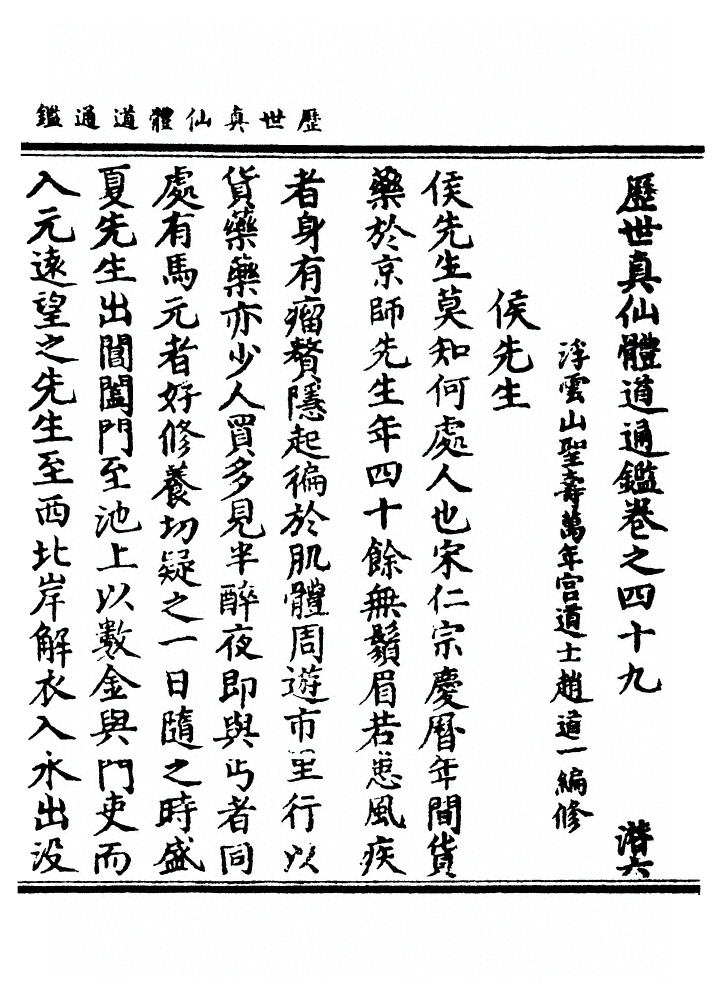 歷世真仙體道通鑑
歷世真仙體道通鑑卷之四十九 潜六
浮雲山聖壽萬年宫道士趙道一編修
侯先生
侯先生莫知何處人也宋仁宗慶曆年間貨
藥於京師先生年四十餘無鬚眉若患風疾
者身有瘤贅隱起徧於肌體周遊市里行以
貨藥藥亦少人買多見半醉夜即與丐者同
處有馬元者好修養切疑之一日隨之時盛
夏先生出閶闔門至池上以數金與門吏而
入元遠望之先生至西北岸解衣入水出没